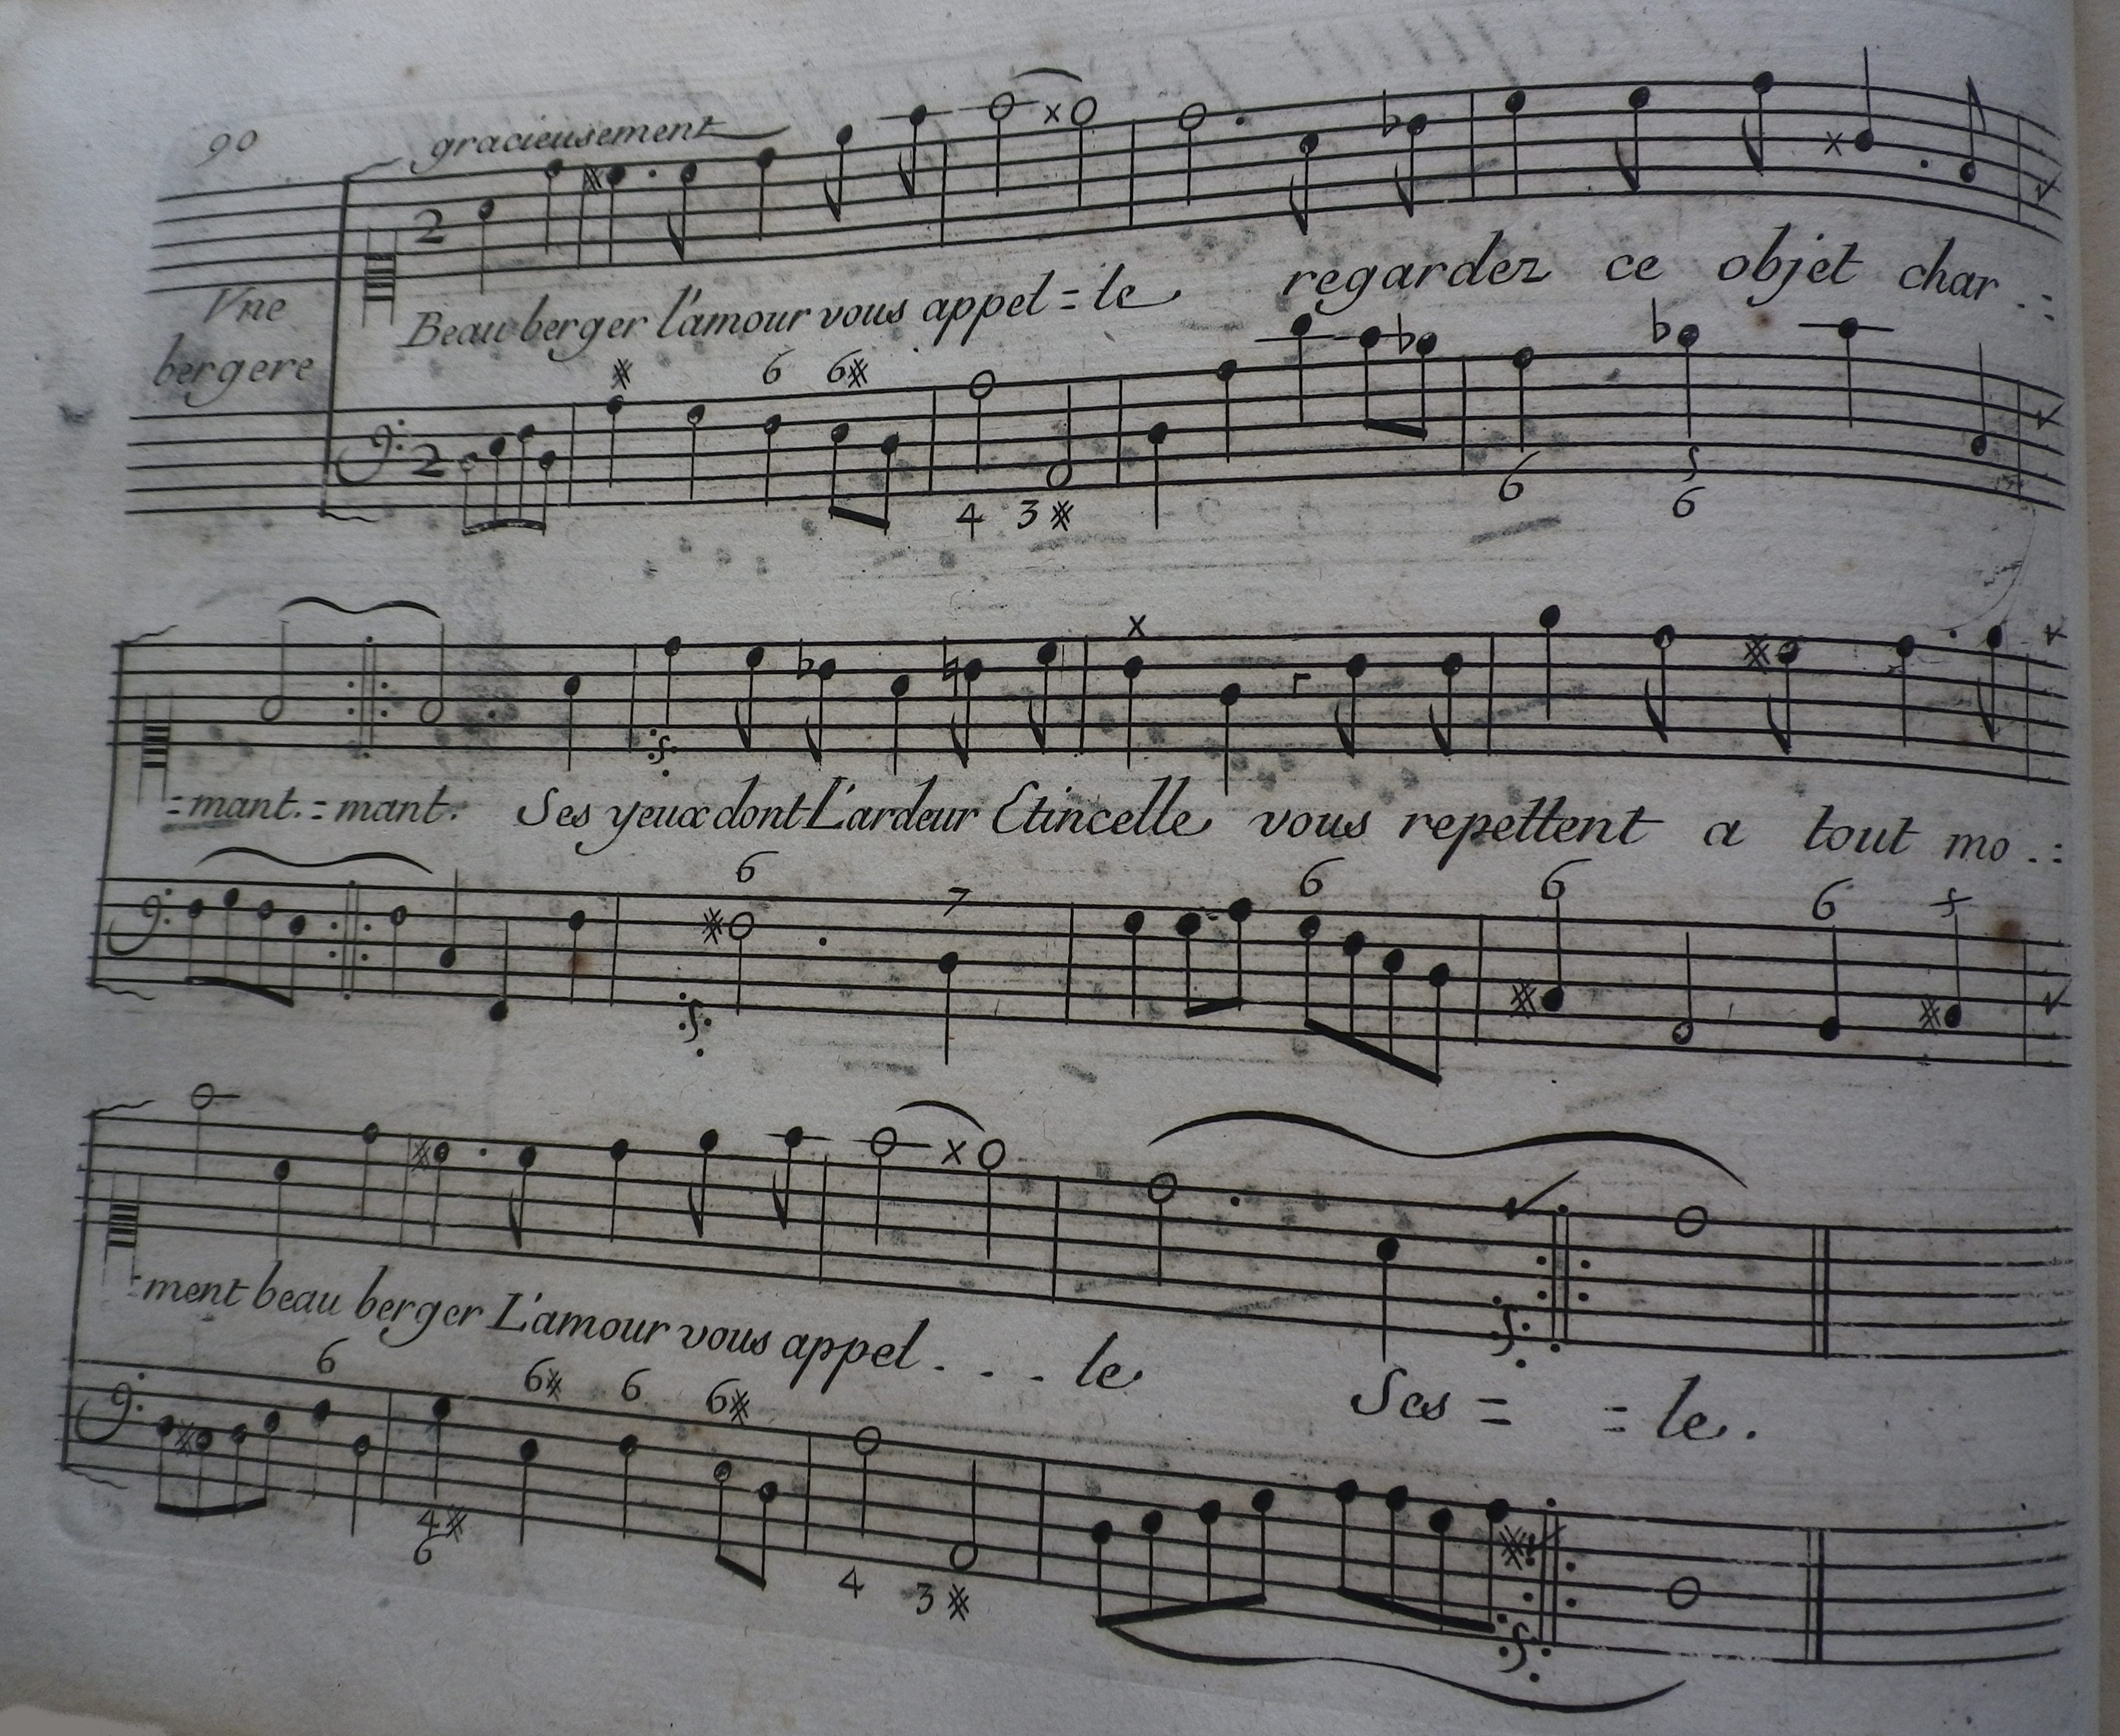 90
gracieusement
2
Vne
bergere
Beau berger l'amour vous appel = le regardez ce objet char .:
6 6
2
4 3 6 5
6
= mant. = mant. Ses yeux dont L'ardeur Etincelle vous repettent a tout mo .:
6 7 6 6 6
- ment beau berger L'amour vous appel . . . le Ses = = le .
6 6 6 6
4
6 4 3